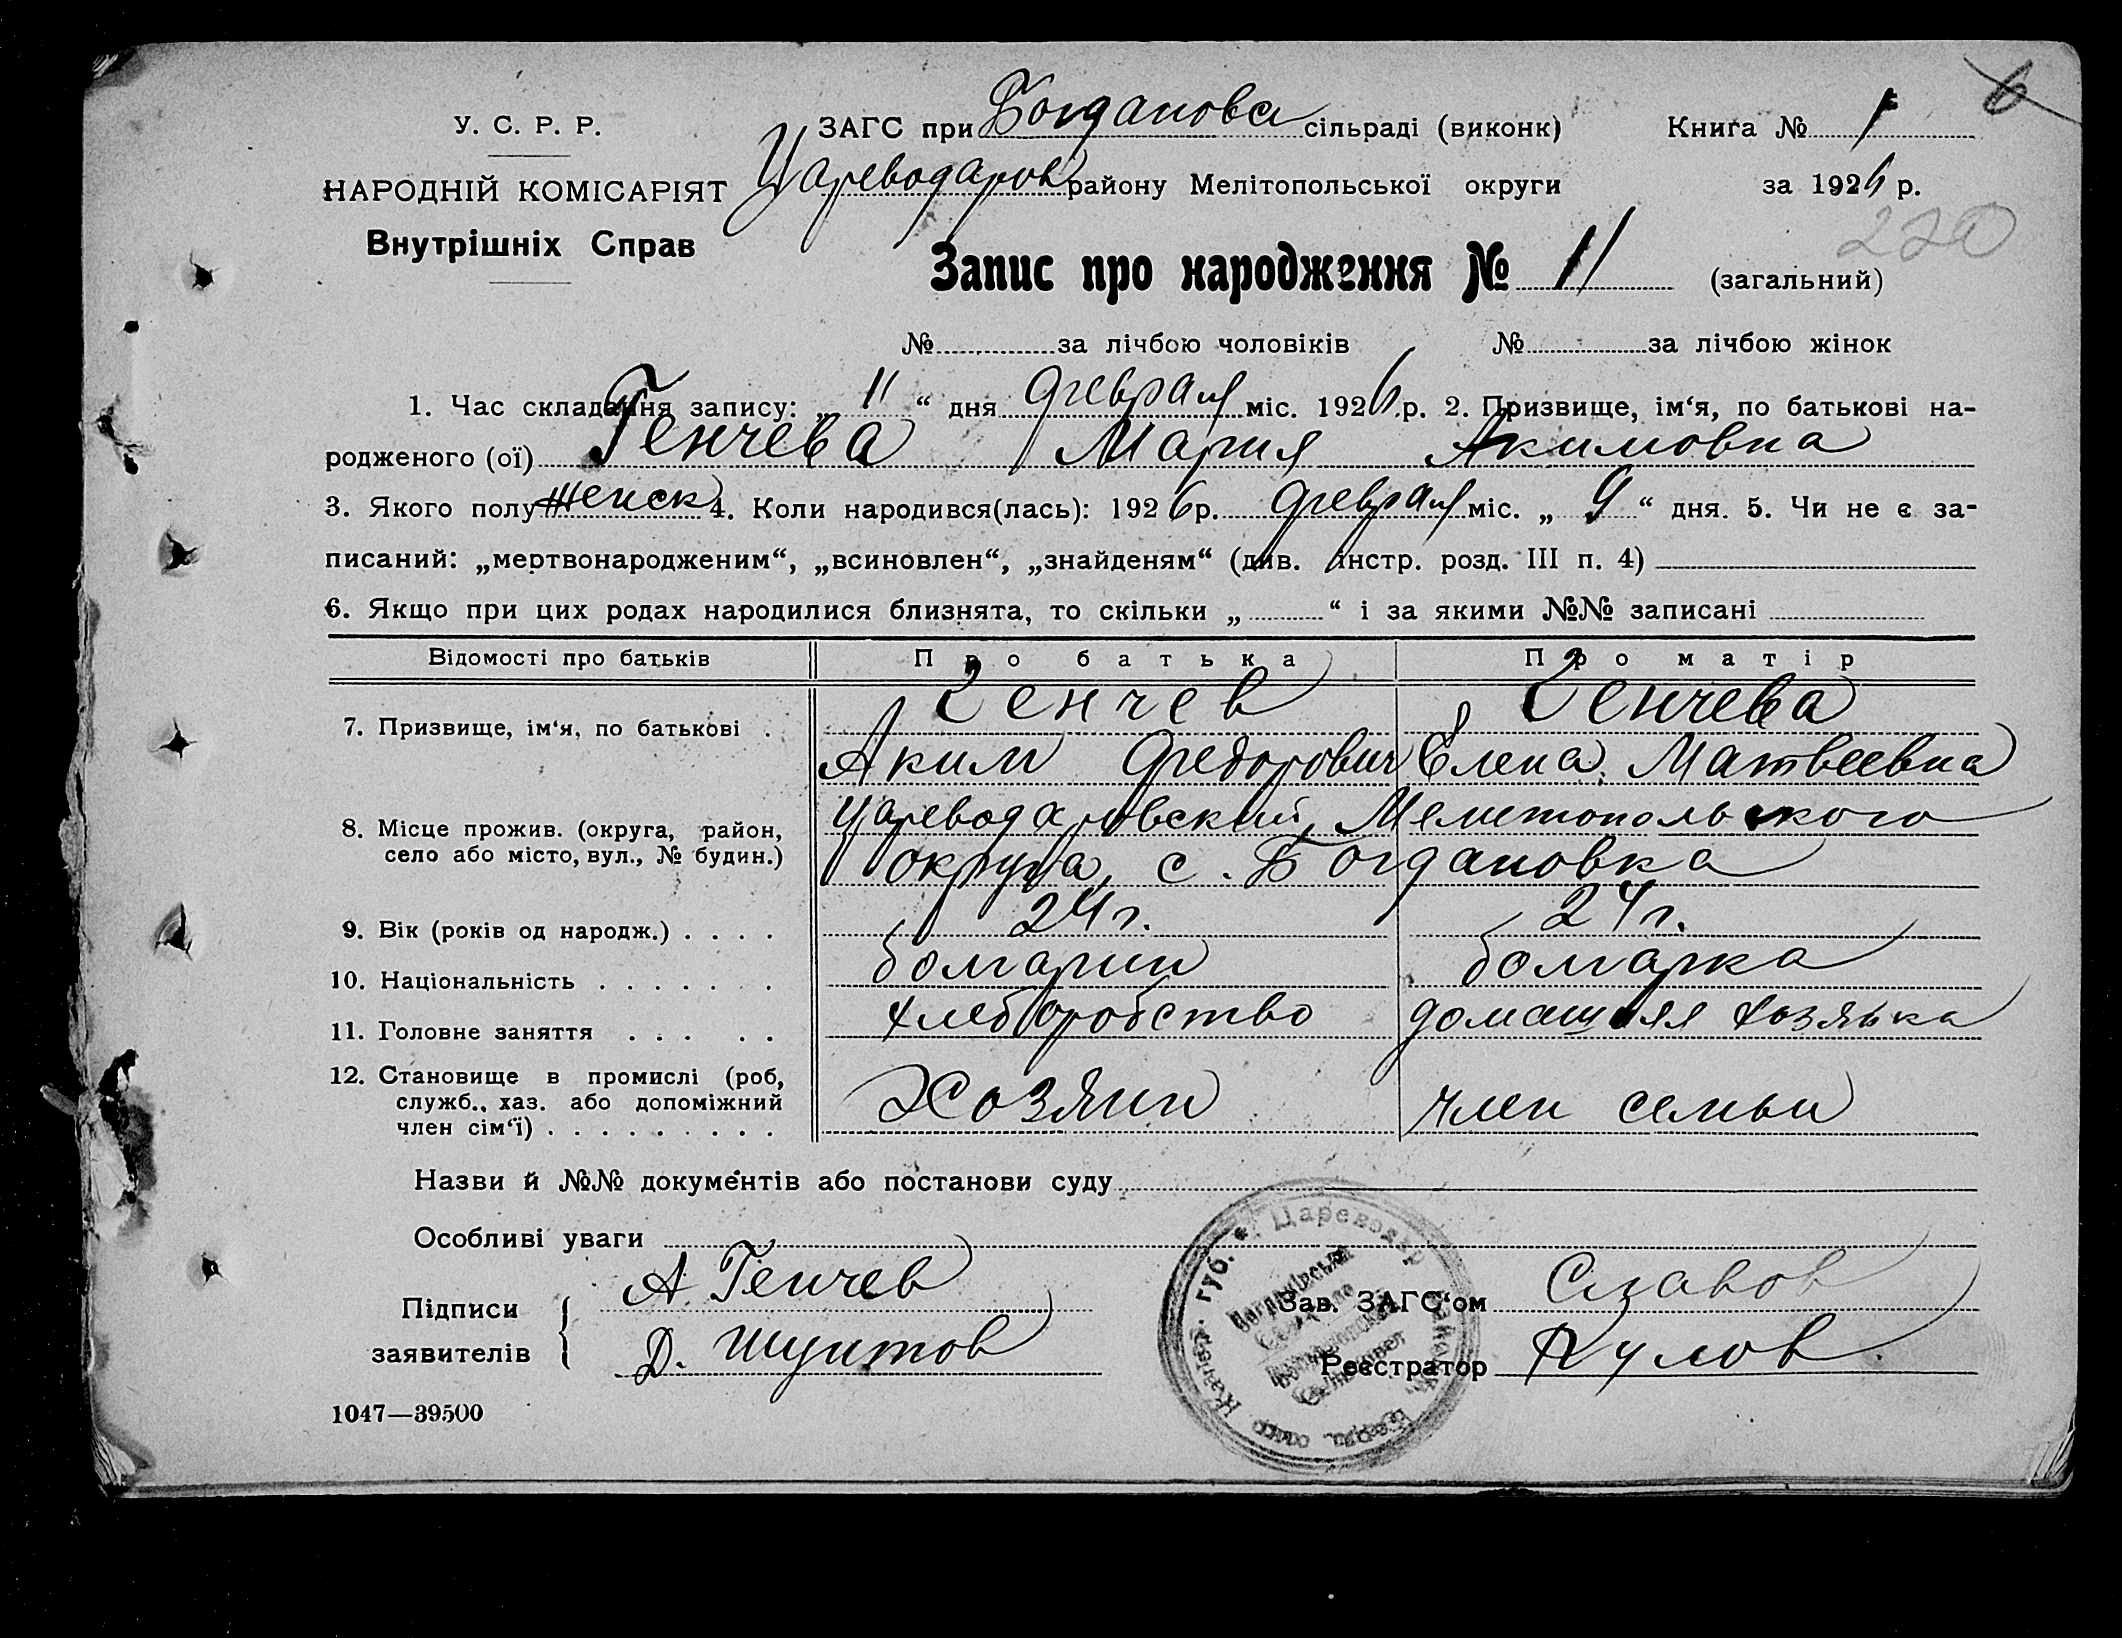 У. С. Р. Р.
НАРОДНІЙ КОМІСАРІЯТ
Внутрішніх Справ
ЗАГС при Богданова сільраді (виконк) Книга № 1
Цареводаров району Мелітопольської округи за 1926 р.
220
Запис про народження № 11 (загальний)
№ за лічбою чоловіків № за лічбою жінок
1. Час складання запису: „ 11 “ дня Февраля міс. 1926 р. 2. Призвище, ім‘я, по батькові на-
родженого (ої) Генчева Мария Акимовна
3. Якого полу женск 4. Коли народився(лась): 1926 р. Февраля міс. „ 9 “ дня. 5. Чи не є за-
писаний: „мертвонародженим“, „всиновлен“, „знайденям“ (див. інстр. розд. III п. 4)
6. Якщо при цих родах народилися близнята, то скільки „ “ і за якими №№ записані
Відомості про батьків Про батька Про матір
7. Призвище, ім‘я, по батькові . Генчев Генчева
Аким Федорович Елена Матвеевна
8. Місце прожив. (округа, район, село або місто, вул., № будин.) Цареводаровский, Мелитопольского
округа, с. Богдановка
9. Вік (років од народж.) . . . . 24 г. 24 г.
10. Національність . . . . . . . болгарин болгарка
11. Головне заняття . . . . . хлеборобство домашняя хозяька
12. Становище в промислі (роб,
служб., хаз. або допоміжний
член сім‘ї) . . . . . . . . . Хозяин член семьи
Назви й №№ документів або постанови суду
Особливі уваги
Підписи заявителів А. Генчев
Д. Шунтов
Зав. ЗАГС‘ом Славов
Реєстратор Кулов
1047—39500